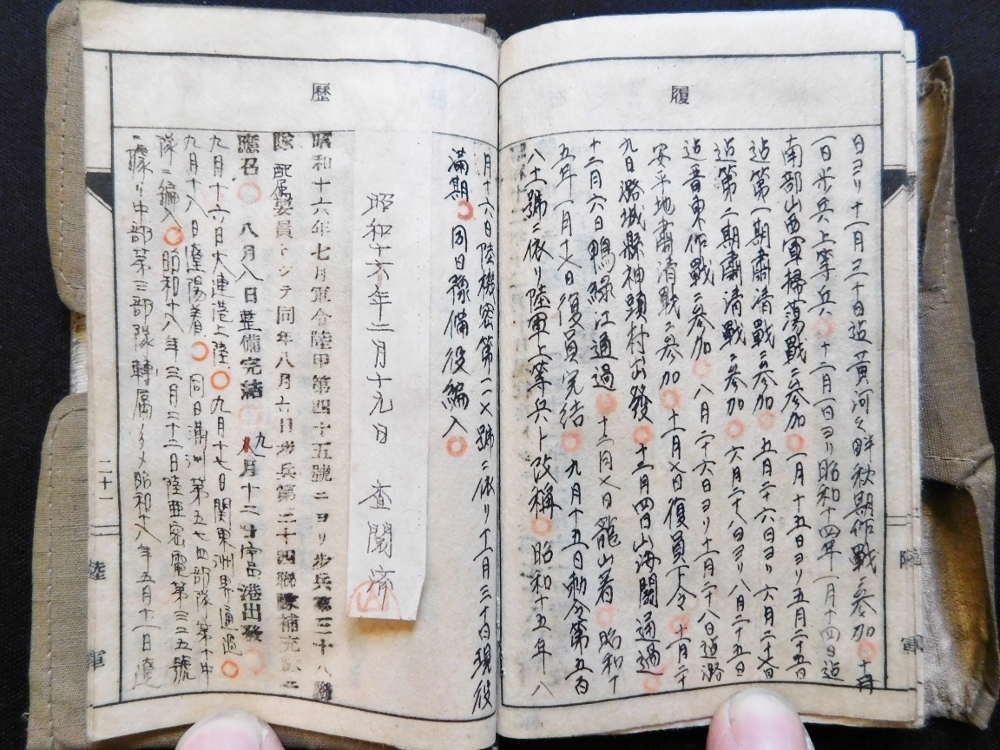 履
日ヨリ十一月三十日迠黄河々畔秋期作戰ニ参加
一日歩兵上等兵 十二月一日ヨリ昭和十四年一月十四日迠
南部山西軍掃蕩戰ニ参加 一月十五日ヨリ五月二十五日
迠第一期肅清戰ニ参加 五月二十六日ヨリ六月二十七日
迠第二期肅清戰ニ参加 六月二十八日ヨリ八月二十五日
迠晋東作戰ニ参加 八月二十六日ヨリ十一月二十八日迠潞
安平地肅清戰ニ参加 十一月七日復員下令 十一月二十
九日潞城縣神頭村出發 十二月四日山海關通過
十二月六日鴨緑江通過 十二月七日龍山着 昭和十
五年一月十七日復員完結 九月十五日勅令第五百
八十一號ニ依リ陸軍上等兵ト改稱 昭和十五年八
陸軍
歴
月十六日陸機密第一二×號ニ依リ十一月三十日現役
滿期 同日豫備役編入
昭和十六年二月十九日 査閲済
昭和十六年七月軍令陸甲第四十五號ニヨリ歩兵第三十八
隊 配属要員トシテ同年八月六日歩兵第二十四聯隊補充隊ニ
應召 八月八日整備完結 九月十二日 港出發
九月十六日大連港上陸 九月十七日関東州界通過
九月十八日遼陽着 同日滿洲第五七四部隊第十中
隊ニ編入 昭和十八年三月二十二日陸亜密電第三三五號
ニ據リ中部第三部隊轉属ノタメ昭和十八年五月十一日遼
二十一
陸軍